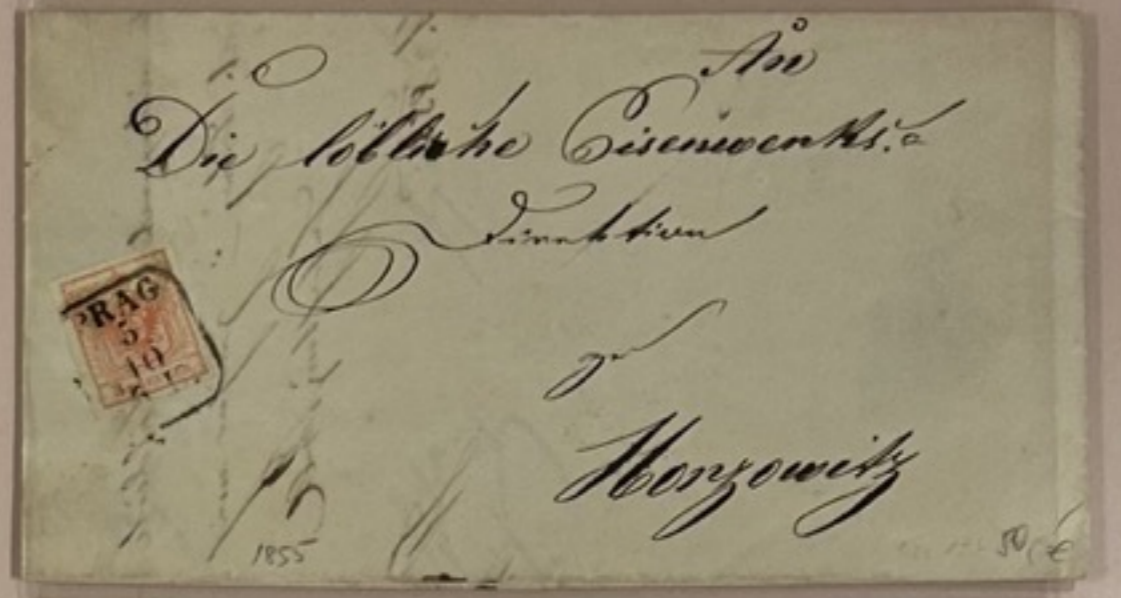 An
Die löbliche Eisenwerks.
Direktion
zu
Horzowitz
PRAG
5
10
1855
50 €